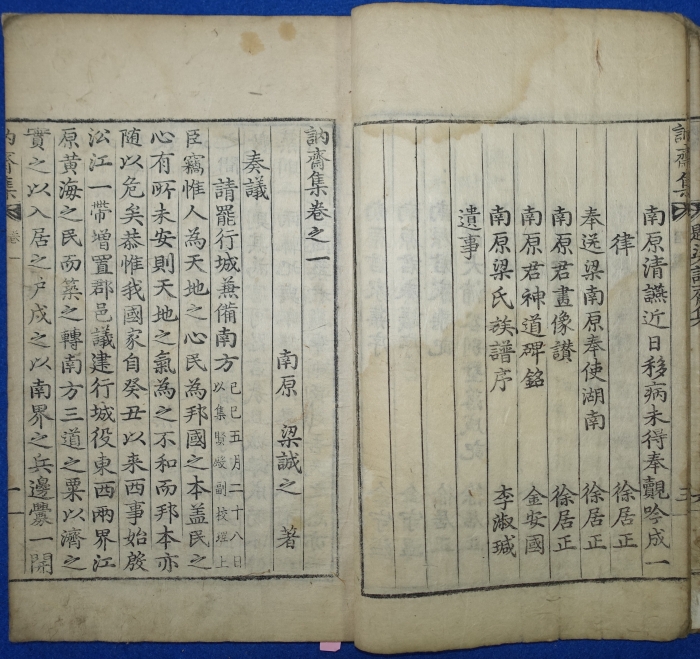 南原清讌近日移病未得奉覿吟成一
律 徐居正
奉送梁南原奉使湖南 徐居正
南原君畫像讃 徐居正
南原君神道碑銘 金安國
南原梁氏族譜序 李淑瑊
遺事
訥齋集卷之一
南原 梁誠之 著
奏議
請罷行城兼備南方 己巳五月二十八日
以集賢殿副校理上
臣竊惟人為天地之心民為邦國之本盖民之
心有所未安則天地之氣為之不和而邦本亦
随以危矣恭惟我國家自癸丑以来西事始殷
沿江一帶增置郡邑議建行城役東西兩界江
原黄海之民而築之轉南方三道之粟以濟之
實之以入居之户戍之以南界之兵邊釁一開